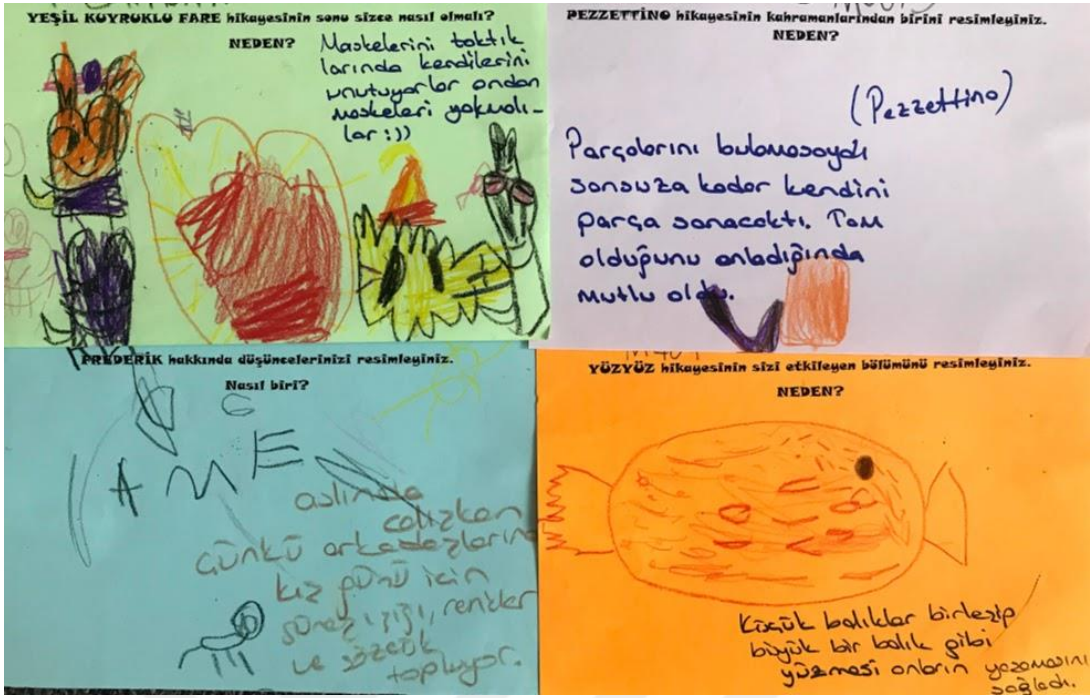 YEŞİL KUYRUKLU FARE hikayesinin sonu sizce nasıl olmalı?
NEDEN?
Maskelerini taktık
larında kendilerini
unutuyorlar ondan
maskeleri yakmalı-
lar :))
PEZZETTİNO hikayesinin kahramanlarından birini resimleyiniz.
NEDEN?
(Pezzettino)
Parçalarını bulamasaydı
sonsuza kadar kendini
parça sanacaktı. Tam
olduğunu anladığında
mutlu oldu.
FREDERİK hakkında düşüncelerinizi resimleyiniz.
Nasıl biri?
aslında
çalışkan
Günkü arkadaşların
kış günü için
güneş ışığı, renkler
ve sözcük
topluyor.
YÜZYÜZ hikayesinin sizi etkileyen bölümünü resimleyiniz.
NEDEN?
Küçük balıklar birleşip
büyük bir balık gibi
yüzmesi onların yaşamasını
sağladı.